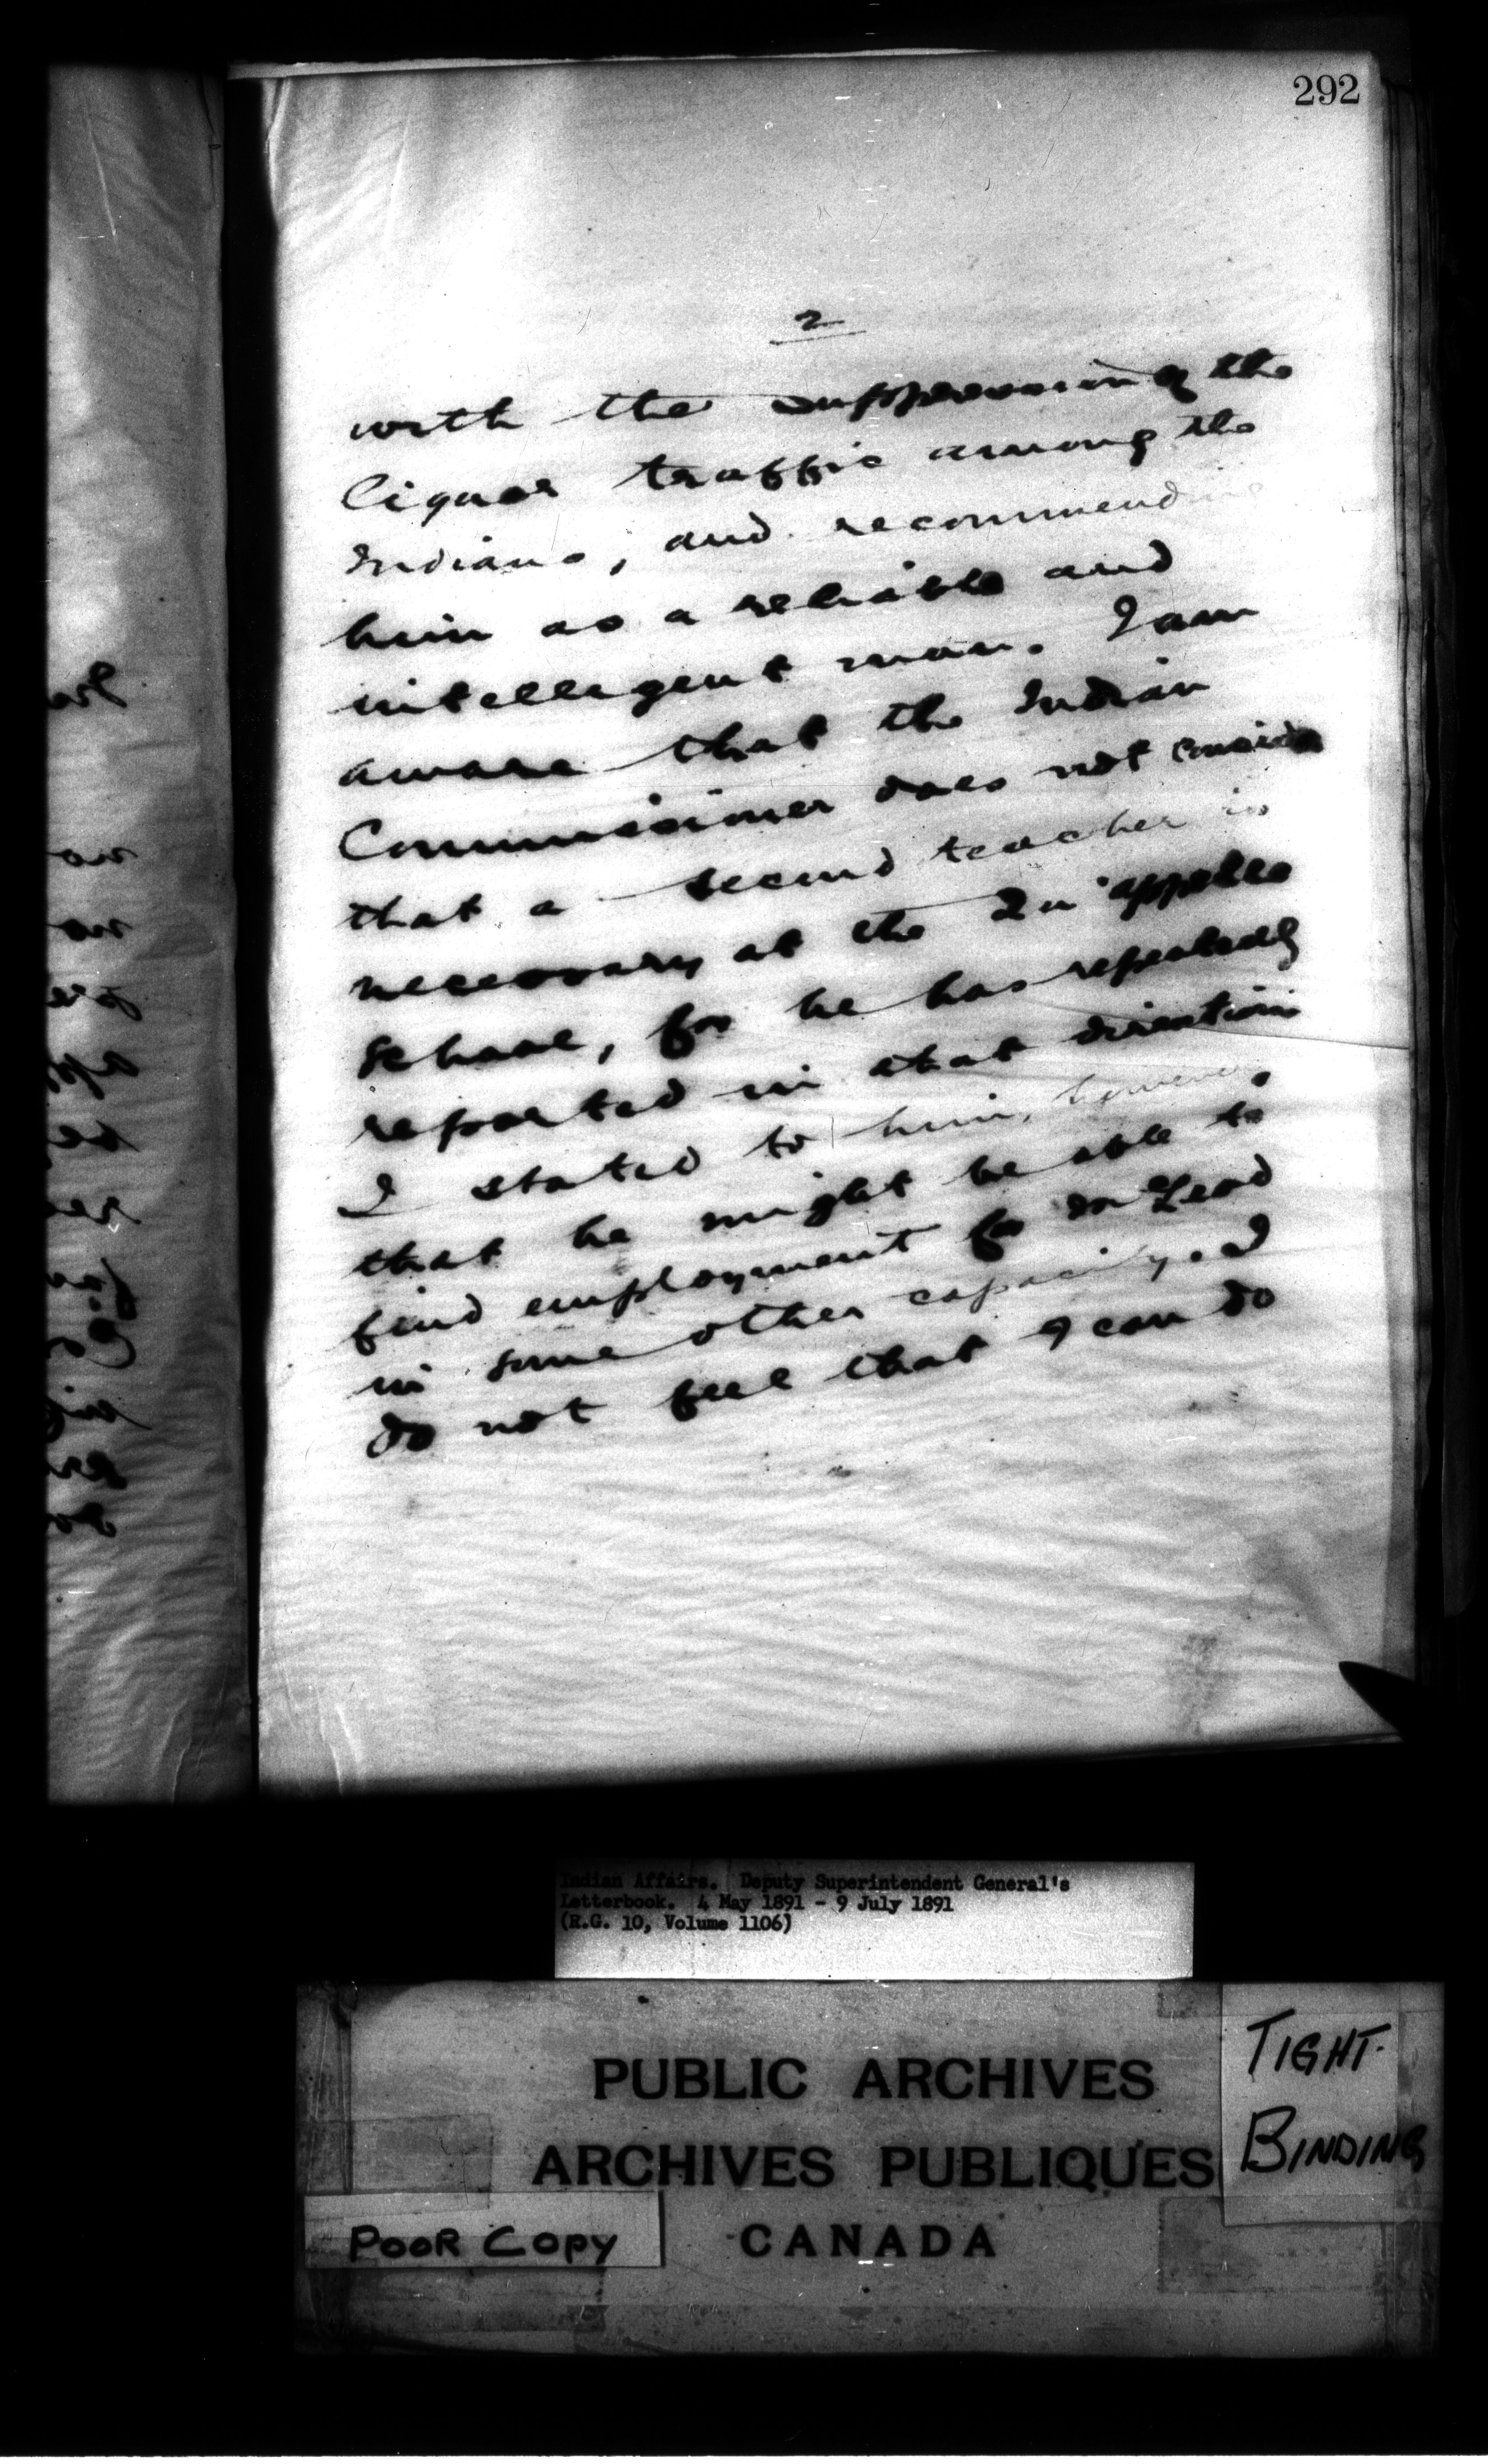 292
2
with the suppression of the
liquor traffic among the
Indians, and recommending
him as a reliable and
intelligent man. I am
aware that the Indian
Commissioner does not consider
that a second teacher is
necessary at the Qu'appelle
School, for he has repeatedly
reported in that direction
I stated to him, however,
that he might be able to
find employment for Mr
in some other capacity. I
do not feel that I can do
Indian Affairs. Deputy Superintendent General's
Letterbook. 4 May 1891 - 9 July 1891
(R.G. 10, Volume 1106)
PUBLIC ARCHIVES
ARCHIVES PUBLIQUES
CANADA
TIGHT
BINDING
POOR COPY